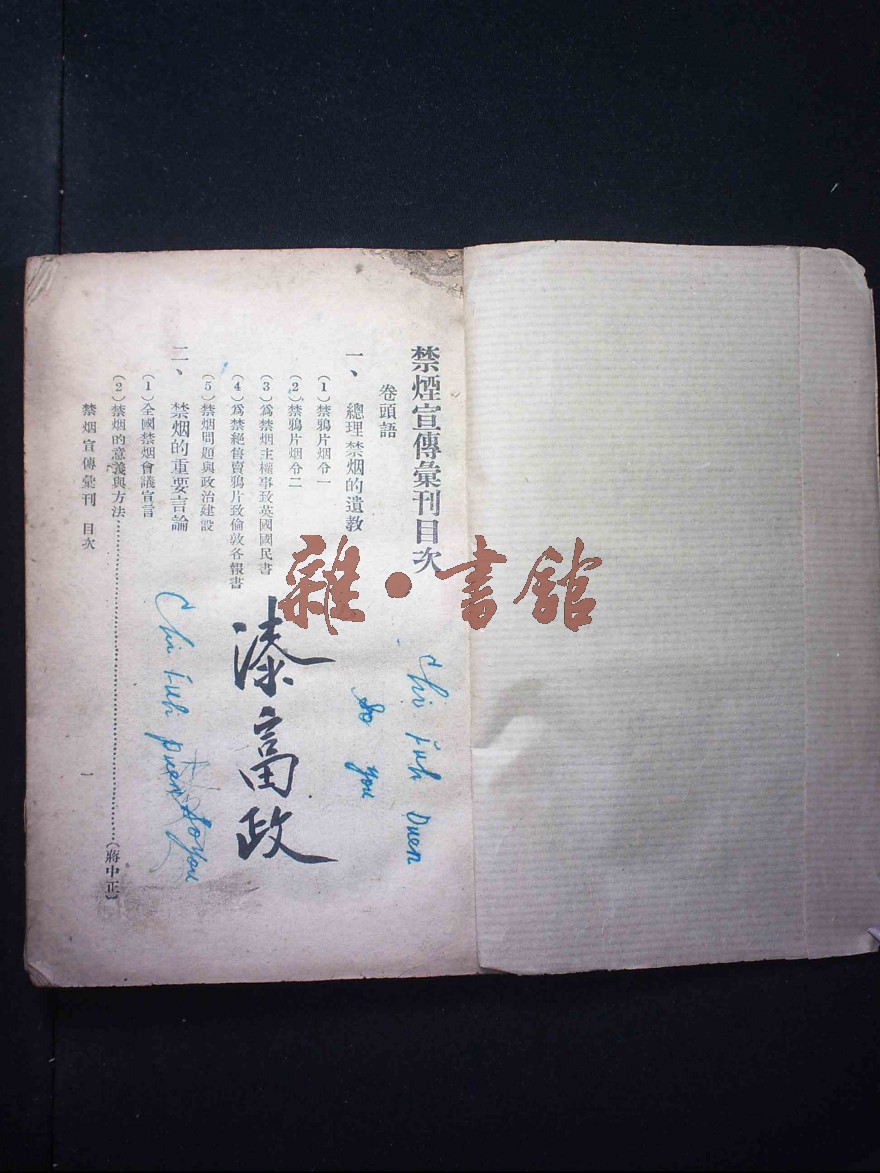 禁煙宣傳彙刊目次
卷頭語
一、總理禁烟的遺教
(1)禁鴉片烟令一
(2)禁鴉片烟令二
(3)爲禁烟主權事致英國國民書
(4)爲禁絕售賣鴉片致倫敦各報書
(5)禁烟問題與政治建設
二、禁烟的重要言論
(1)全國禁烟會議宣言
(2)禁烟的意義與方法……(蔣中正)
禁烟宣傳彙刊 目次
一
Chi Fuh Duen
So you
漆富政
Chi Fuh Duen So you
雜·書館